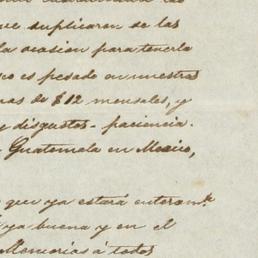 que duplicaron de las
la ocasion para tenerle
es pesado en nuestras
de $12 mensales, y
y disgustos - paciencia.
Guatemala en Mexico,
que ya estará enteramte
ya buena y en el
Memorias à todos